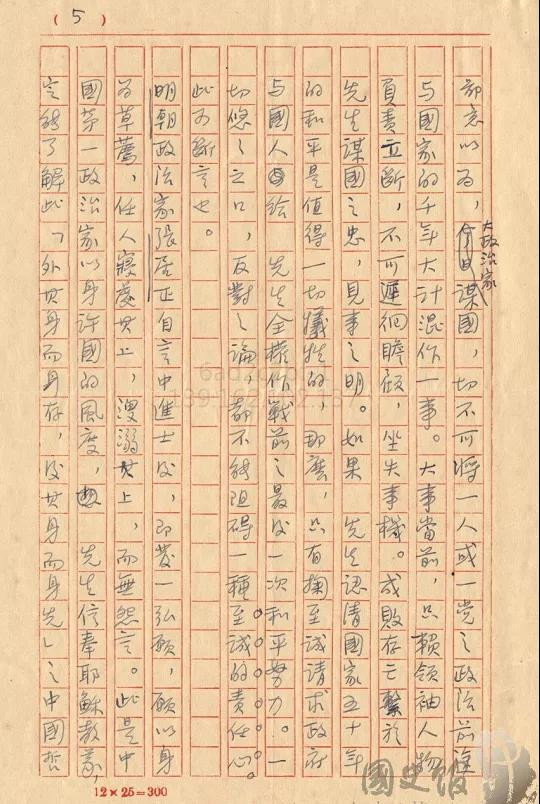 (5)
鄙意以為,大政治家謀國,切不可將一人或一黨之政治前途
与國家的千年大計混作一事。大事當前,只賴領袖人物
負責立斷,不可遲徊瞻顧,坐失事機。成敗存亡繫於
先生謀國之忠,見事之明。如果 先生認清國家五十年
的和平是值得一切犧牲的,那麼,只有掬至誠請求政府
与國人給 先生全權作戰前之最後一次和平努力。一
切悠悠之口,反對之論,都不能阻碍一種至誠的責任心。
此可斷言也。
明朝政治家張居正自言中進士後,即發一弘願,願以身
為草薦,任人寢處其上,溲溺其上,而無怨言。此是中
國第一政治家以身許國的風度,想 先生信奉耶穌教義,
定能了解此「外其身而身存,後其身而身先」之中國哲
12×25=300
國史館